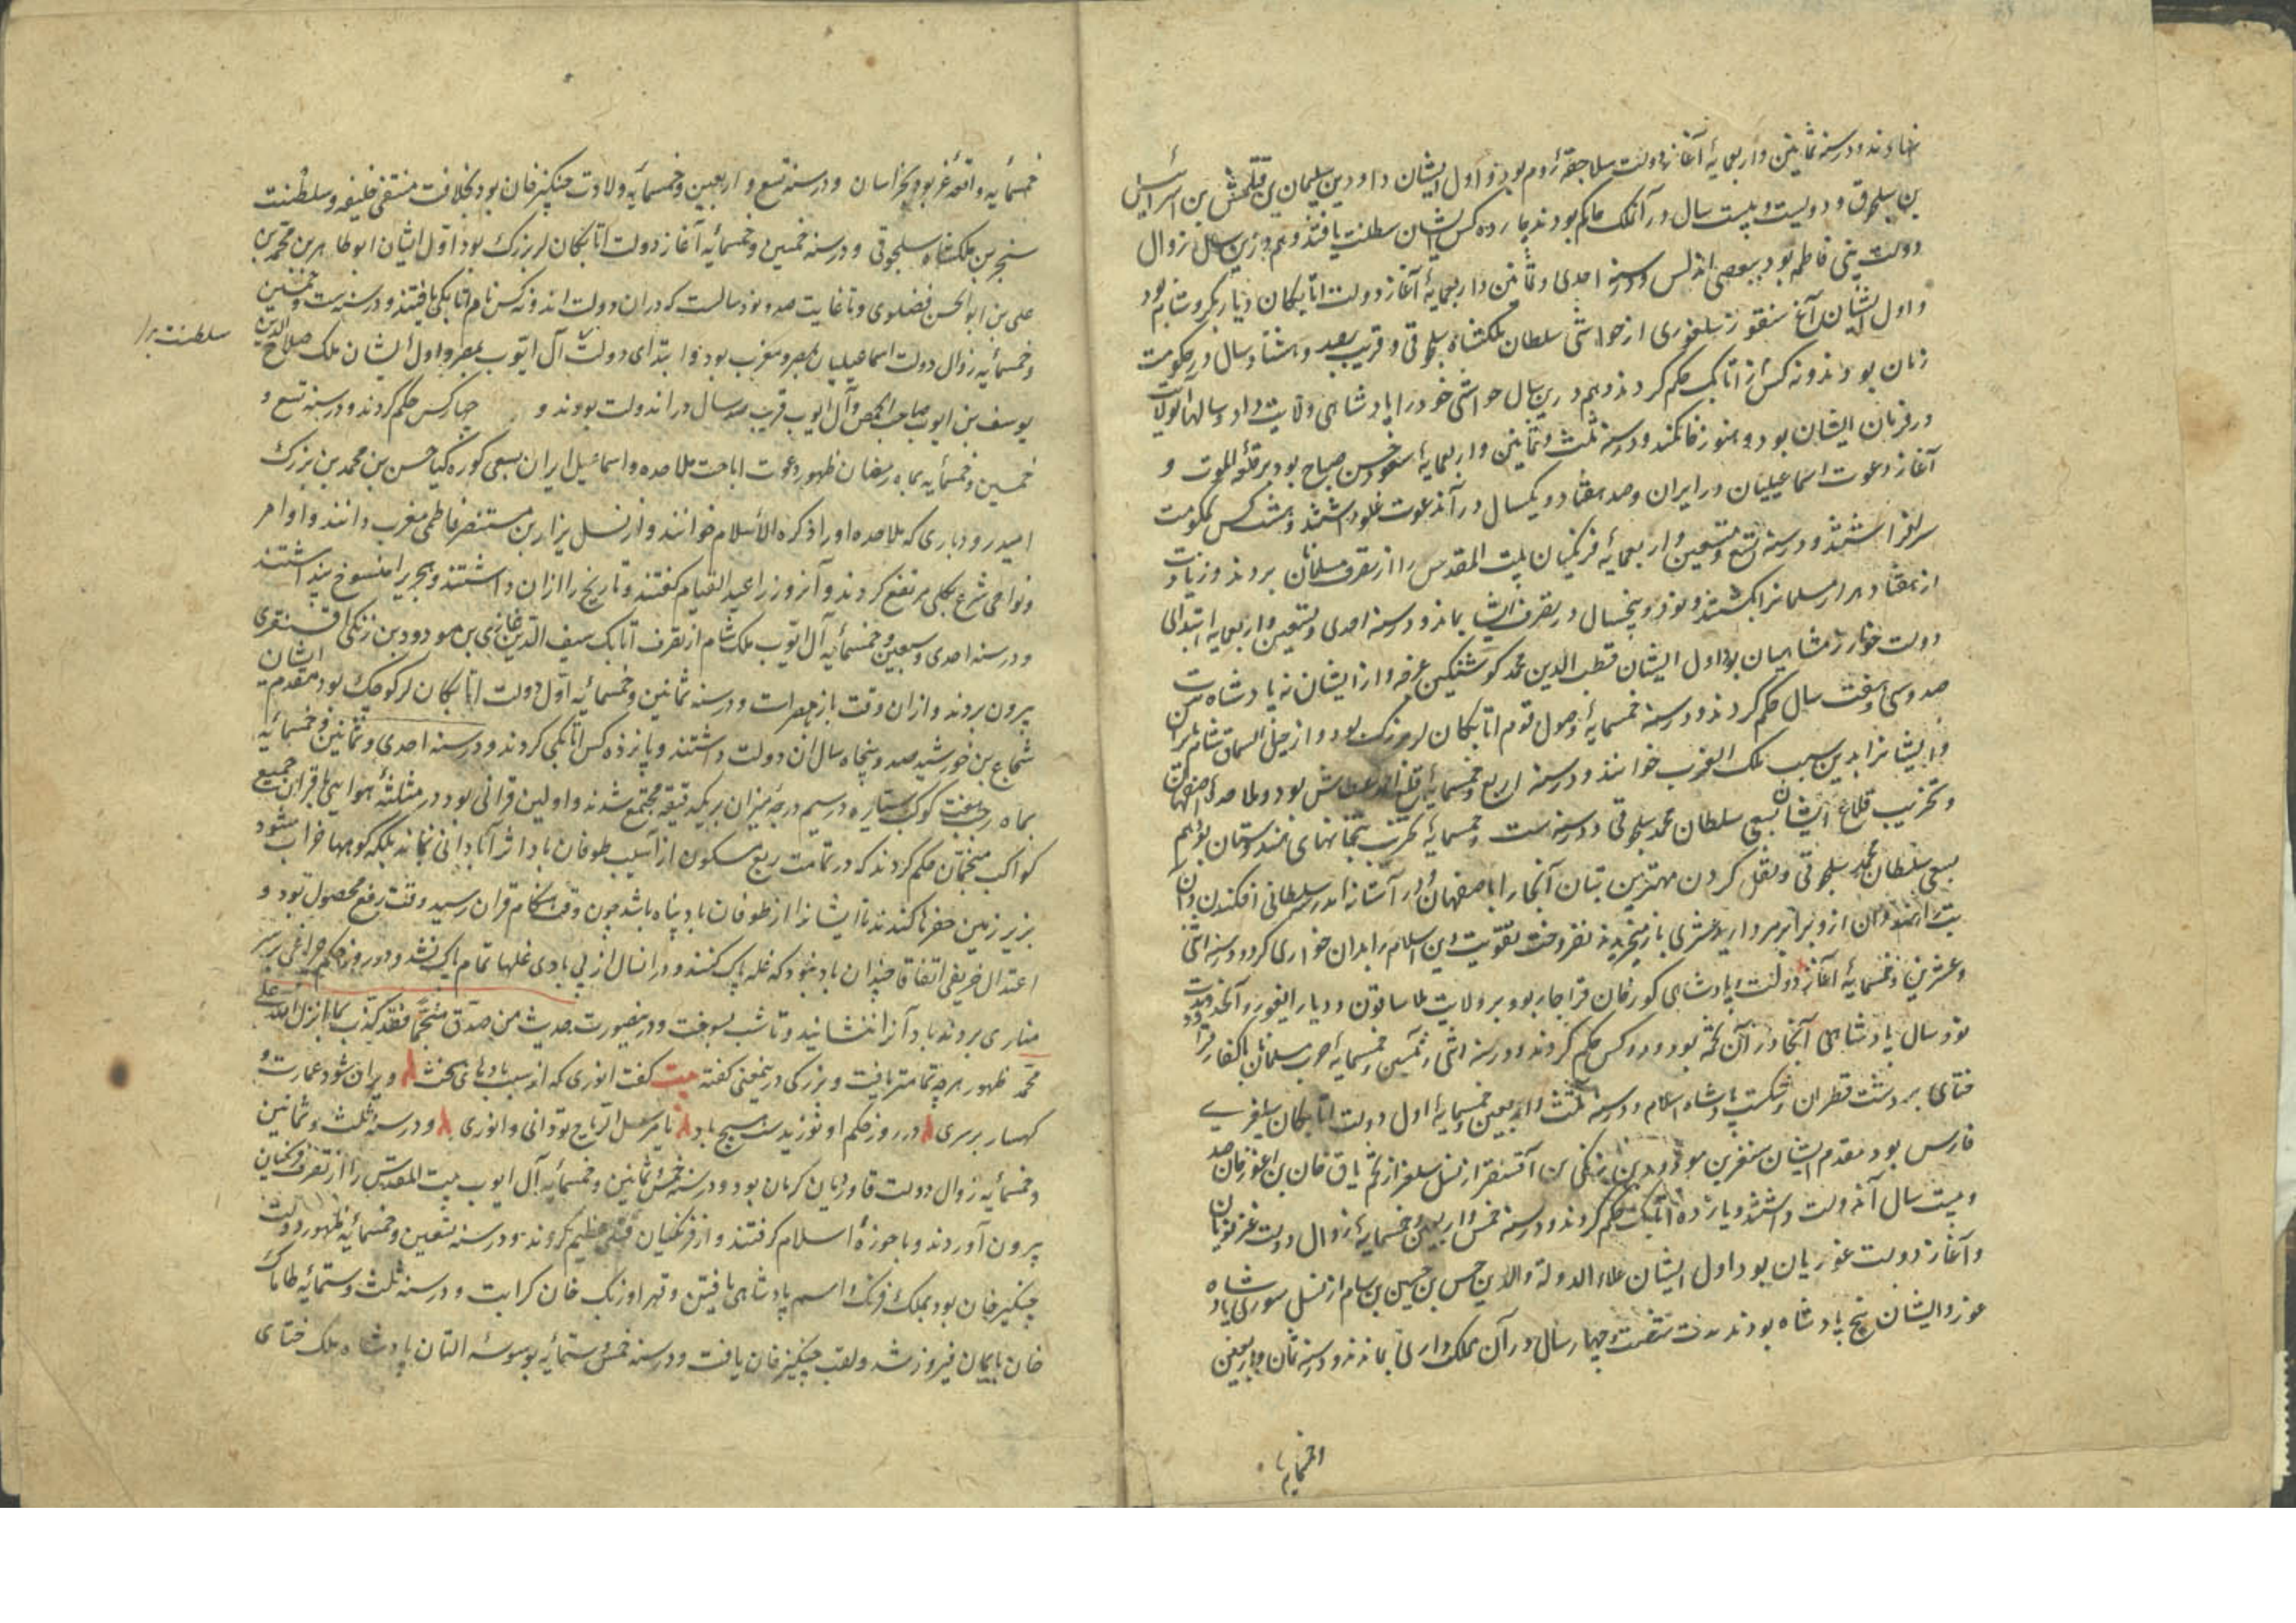 نهاوند و در سنه ثمانین و اربعمایه آغاز دولت سلاجقه روم بود و اول ایشان داود بن سلیمان بن قتلمش بن اسرائیل
بن سلجوق و دویست و بیست سال در آن ملک حاکم بودند چهارده کس ایشان سلطنت یافتند و هم درین سال زوال
دولت بنی فاطمه بود ببعضی اندلس و در سنه احدی و ثمانین و اربعمایه آغاز دولت اتابکان دیار بکر و شام بود
و اول ایشان آق سنقور از حواشی سلطان ملکشاه سلجوقی و قریب بصد و هشتاد سال در حکومت
زمان بودند و نه کس از اتابک حکم کردند و هم درین سال حواشی خود را پادشاهی ولایت داد و سالها آن ولایات
در فرمان ایشان بود و هنوز و در سنه ثلث و ثمانین و اربعمایه صعود حسن صباح بود بر قلعه الموت و
آغاز دعوت اسماعیلیان در ایران و صد هفتاد و یکسال در آن دعوت غلو داشتند و هشت کس بحکومت
سرافراشتند و در سنه تسع و تسعین و اربعمایه فرنگیان بیت المقدس را از تصرف مسلمانان بردند و زیادت
از هفتاد هزار مسلمانرا بکشتند و نود و پنجسال در تصرف ایشان بماند و در سنه احدی و تسعین و اربعمایه ابتدای
دولت خوارزمشاهیان بود اول ایشان قطب الدین محمد نوشتکین غرجه و از ایشان نه پادشاه مدت
صد و سی و هفت سال حکم کردند و در سنه خمسمایه وصول قوم اتابکان لر بزرگ بود و از جبل السماق شام بلرستان
و ایشانرا بدین سبب ملک العرب خوانند و در سنه اربع و خمسمایه بود و ملاحده اصفهان
و تخریب قلاع ایشان بسعی سلطان محمد سلجوقی و در سنه ست و خمسمایه تخریب بتخانهای هندوستان بود هم
بسعی سلطان محمد سلجوقی و نقل کردن مهترین بتان آنجا را باصفهان و در آستانه مدرسه سلطانی افکندن و آن
بت را هندوان ازو برابر مروارید عشری باز میخریدند نفروخت تقویت دین اسلام را بدان خواری کرد و در سنه اثنی
و عشرین و خمسمایه آغاز دولت و پادشاهی کورخان قراجار بود بر ولایت بلاساقون و دیار ایغور و آنحدود
نود سال پادشاهی آنجا در آن تخمه بود و دو کس حکم کردند و در سنه اثنی و ثلثین و خمسمایه حرب مسلمانان با کفار قرا
ختای بر دشت قطران و شکست پادشاه اسلام و در سنه ثلث و اربعین و خمسمایه اول دولت اتابکان سلغری
فارس بود مقدم ایشان سنقر بن مودود بن زنکی بن آقسنقر از نسل سلغر از تخم یاق خان بن اغوز خان صد
و بیست سال آن دولت داشتند و یازده اتابک حکم کردند و در سنه خمس و اربعین و خمسمایه زوال دولت غزنویان
و آغاز دولت غوریان بود اول ایشان علاء الدوله والدین حسن بن حسین بن سام از نسل سوری پادشاه
غور و ایشان پنج پادشاه بودند مدت شصت و چهار سال در آن مملکت والی بماندند و در سنه ثمان و اربعین
و خمسمایه
خمسمائیه واقعه غز بود بخراسان و در سنه تسع و اربعین و خمسمائیه ولادت چنکیز خان بود بخلافت مقتفی خلیفه و سلطنت
سنجر بن ملکشاه سلجوقی و در سنه خمسین و خمسمائیه آغاز دولت اتابکان لر بزرک بود اول ایشان ابو طاهر بن محمد بن
علی بن ابو الحسن فضلوی و تا غایت صد و نود سالست که در ان دولت اند و نه کس نام اتابکی یافتند و در سنه ست و خمسین
و خمسمائیه زوال دولت اسماعیلیان بمصر و مغرب بود و ابتدای دولت آل ایوب بمصر و اول ایشان ملک صلاح الدین
سلطنت برا
یوسف بن ایوب صاحب حمص و آل ایوب قریب صد سال در اندولت بودند و چهار کس حکم کردند و در سنه تسع و
خمسین و خمسمائیه بماه رمضان ظهور دعوت اباحت ملاحده و اسماعیل ایران بسعی کوره کیا حسن بن محمد بن بزرک
امید رودباری که ملاحده او را ذکره الاسلام خوانند و از نسل نزار بن مستنصر فاطمی مغرب دانند و اوامر
و نواهی شرع بکلی مرتفع کردند و آنروز را عید القیام کفتند و تاریخ را از ان داشتند و هجریرا منسوخ پنداشتند
و در سنه احدی و سبعین و خمسمائیه آل ایوب ملک شام از تصرف اتابک سیف الدین غازی بن مودود بن زنکی اقسنقری
بیرون بردند و از ان وقت باز بمصر است و در سنه ثمانین و خمسمائیه اول دولت اتابکان لر کوچک بود مقدم ایشان
شجاع بن خورشید صد و پنجاه سال ان دولت داشتند و پانزده کس اتابکی کردند و در سنه احدی و ثمانین و خمسمائیه
بماه رجب هفت کوکب سیاره در سیم درجه میزان بر یکدقیقه مجتمع شدند و اولین قرانی بود در مثلثه هوایی با قران جمیع
کواکب منجمان حکم کردند که در تمامت ربع مسکون از آسیب طوفان باد اثر آبادانی نماند بلکه کوهها خراب شود
بزیر زمین حفرها کندند تا ایشانرا از طوفان باد پناه باشد چون وقت احکام قران رسید وقت رفع محصول بود و
اعتدال خریفی اتفاقا چندان باد نبود که غله پاک کنند و در انسال از بی بادی غلها تمام پاک نشد و در روز حکم چراغی بر سر
مناری بردند باد آنرا ننشانید و تا شب بسوخت و در ینصورت حدیث من صدق منجما فقد کذب بما انزل الله علی
محمد ظهور هر چه تمامتر یافت و بزرکی در ینمعنی کفته بیت کفت انوری که از سبب بادهای سخت ویران شود عمارت و
کهسار بر سری در روز حکم او نوزید ست هیچ باد یا مرسل الریاح تو دانی و انوری و در سنه ثلث و ثمانین
و خمسمائیه زوال دولت قاوردیان کرمان بود و در سنه خمس و ثمانین و خمسمائیه آل ایوب بیت المقدس را از تصرف فرنکیان
بیرون آوردند و با حوزه اسلام کرفتند و از فرنکیان قتلی عظیم کردند و در سنه تسعین و خمسمائیه ظهور دولت
چنکیز خان بود بملک فرنک و اسم پادشاهی یافتن و قهر اوزنک خان کرایت و در سنه ثلث و ستمائیه
خان نایمان فیروز شد و لقب چنکیز خان یافت و در سنه خمس و ستمائیه بوسوسه التان پادشاه ملک ختای